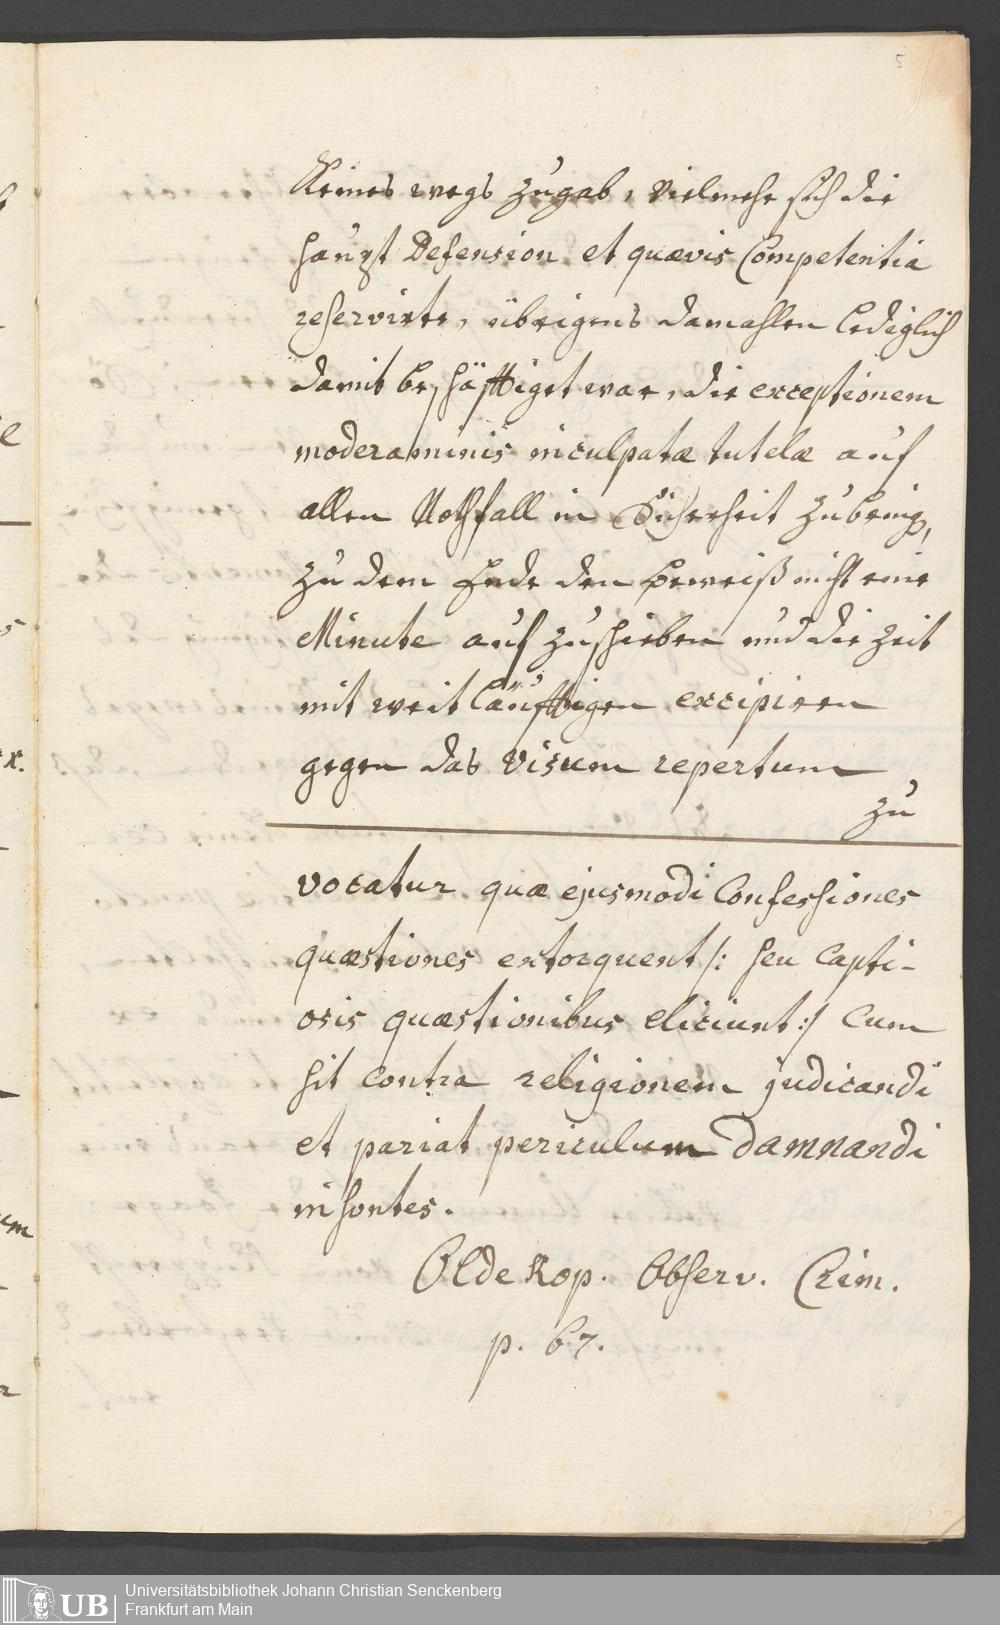 5
Keines wegs zugab, vielmehr sich die
haupt Defension et quævis Competentia
reservirte, übrigens damahlen lediglich
damit beschäfftiget war, die exceptionem
moderaminis inculpatæ tutelæ auf
allen Nothfall in Sicherheit zu bring,
zu dem Ende den beweiß nicht eine
Minute auf zuschieben und die Zeit
mit weit läufftigen excipiren
gegen das visum repertum
zu
vocatur quæ ejusmodi Confessiones
quæstiones extorquent /: seu capti-
osis quæstionibus eliciunt :/ cum
sit contra religionem judicandi
et pariat periculum damnandi
insontes.
Oldekop. Observ. Crim.
p. 67.
UB
Universitätsbibliothek Johann Christian Senckenberg
Frankfurt am Main